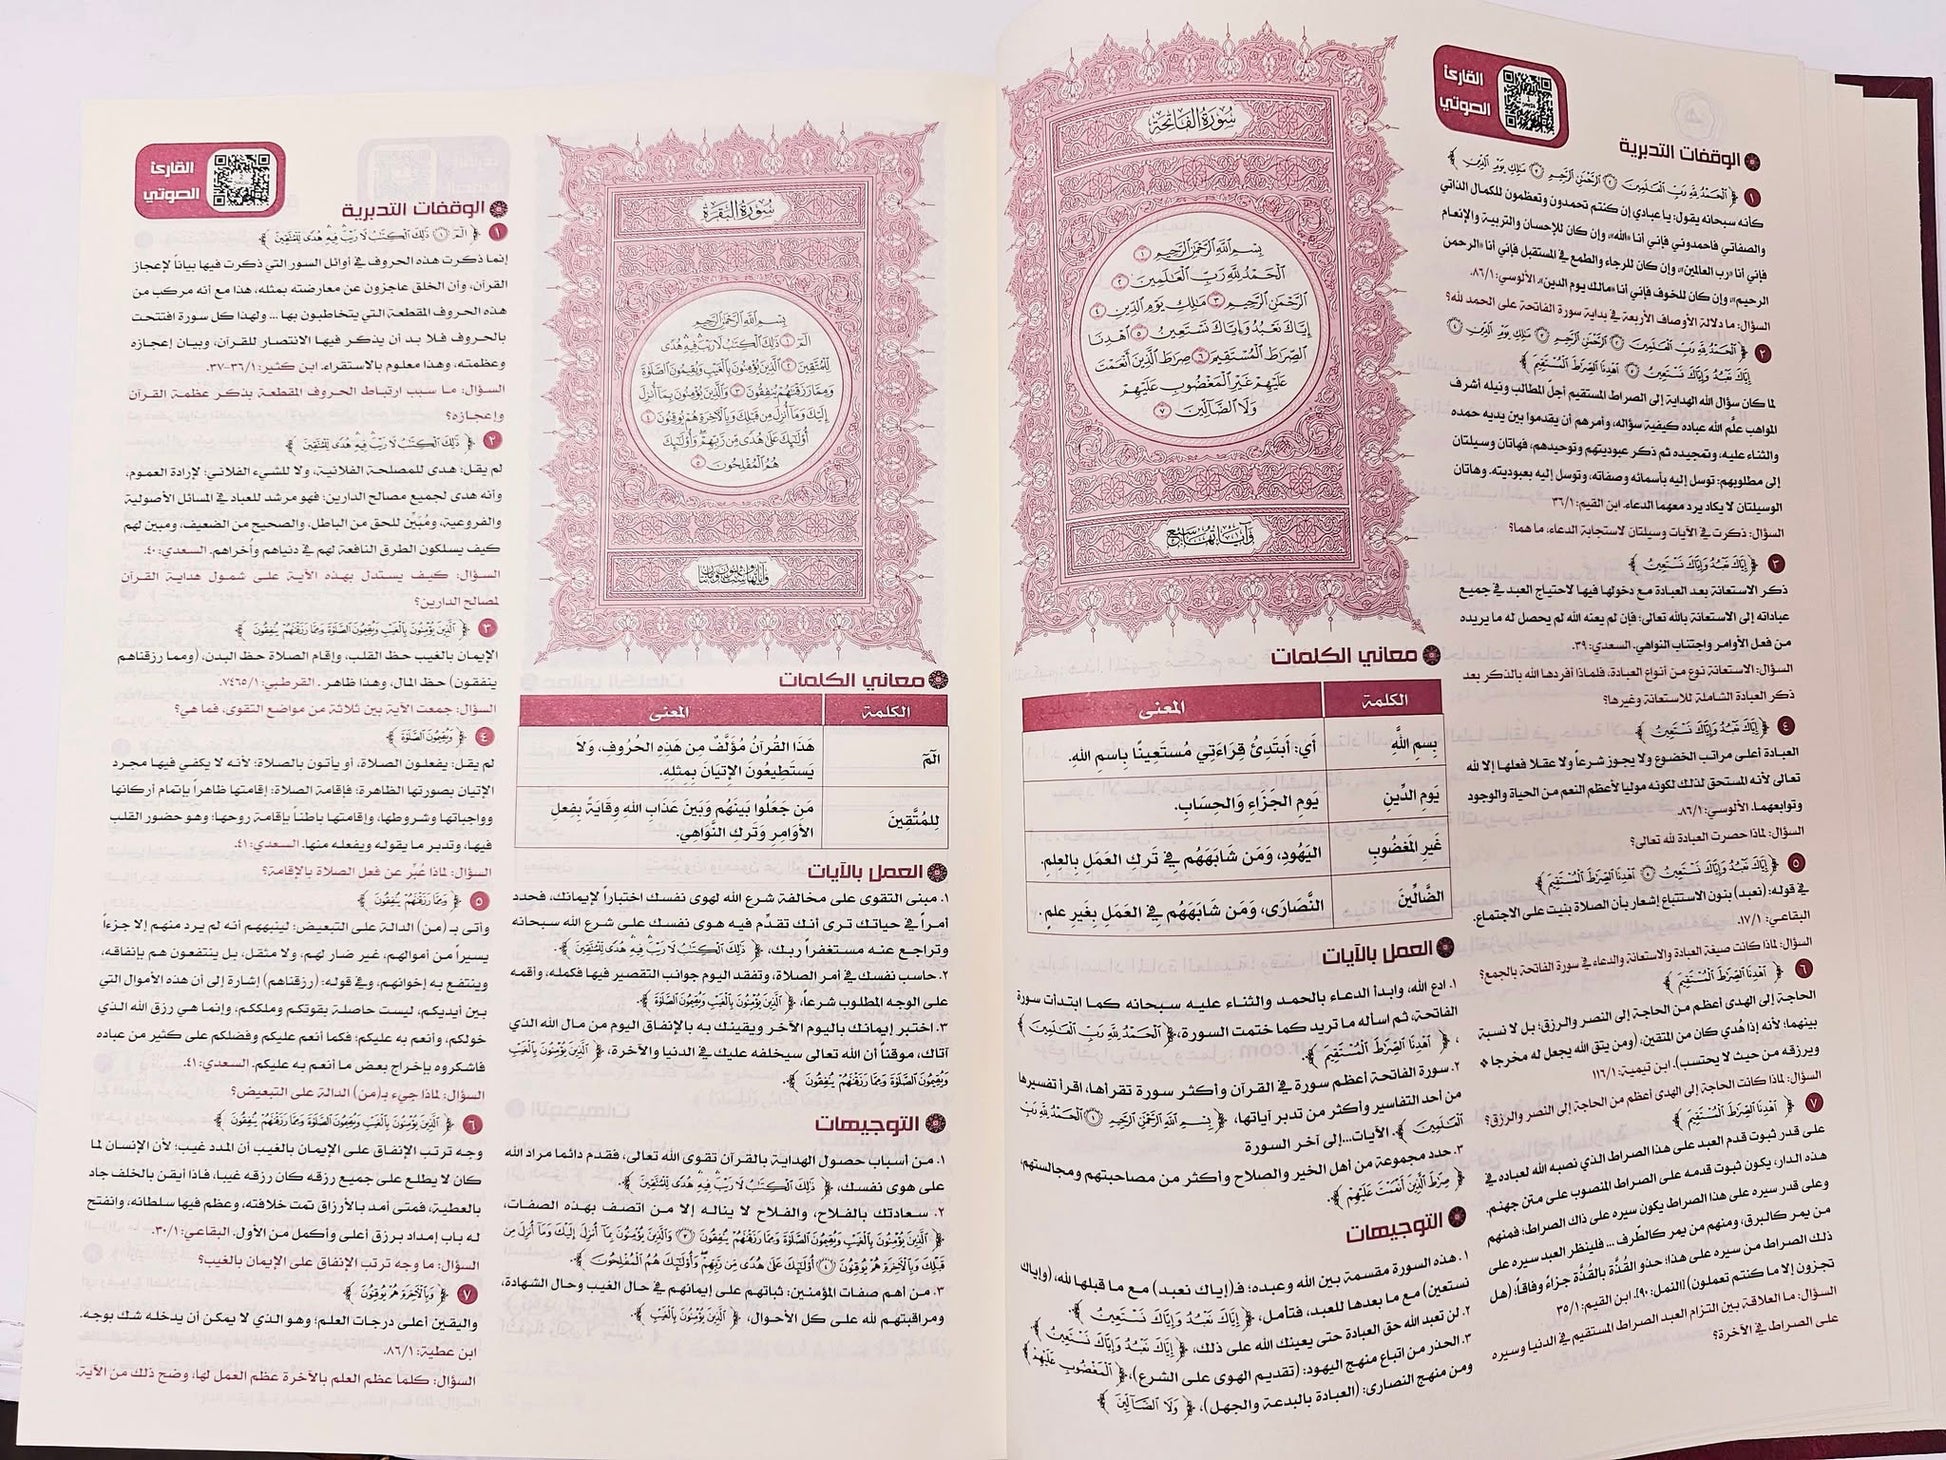 القارئ
الصوتي
الوقفات التدبرية
١ ﴿ ٱلْحَمْدُ لِلَّهِ رَبِّ ٱلْعَٰلَمِينَ ٢ ٱلرَّحْمَٰنِ ٱلرَّحِيمِ ٣ مَٰلِكِ يَوْمِ ٱلدِّينِ ﴾
كأنه سبحانه يقول: يا عبادي إن كنتم تحمدون وتعظمون للكمال الذاتي
والصفاتي فاحمدوني فإني أنا «الله»، وإن كان للإحسان والتربية والإنعام
فإني أنا «رب العالمين»، وإن كان للرجاء والطمع في المستقبل فإني أنا «الرحمن
الرحيم»، وإن كان للخوف فإني أنا «مالك يوم الدين». الألوسي: ٨٦/١.
السؤال: ما دلالة الأوصاف الأربعة في بداية سورة الفاتحة على الحمد لله؟
٢ ﴿ ٱلْحَمْدُ لِلَّهِ رَبِّ ٱلْعَٰلَمِينَ ٢ ٱلرَّحْمَٰنِ ٱلرَّحِيمِ ٣ مَٰلِكِ يَوْمِ ٱلدِّينِ ٤
إِيَّاكَ نَعْبُدُ وَإِيَّاكَ نَسْتَعِينُ ٥ ٱهْدِنَا ٱلصِّرَٰطَ ٱلْمُسْتَقِيمَ ﴾
لما كان سؤال الله الهداية إلى الصراط المستقيم أجلّ المطالب ونيله أشرف
المواهب علّم الله عباده كيفية سؤاله، وأمرهم أن يقدموا بين يديه حمده
والثناء عليه، وتمجيده ثم ذكر عبوديتهم وتوحيدهم، فهاتان وسيلتان
إلى مطلوبهم: توسل إليه بأسمائه وصفاته، وتوسل إليه بعبوديته. وهاتان
الوسيلتان لا يكاد يرد معهما الدعاء. ابن القيم: ٣٦/١
السؤال: ذكرت في الآيات وسيلتان لاستجابة الدعاء، ما هما؟
٣ ﴿ إِيَّاكَ نَعْبُدُ وَإِيَّاكَ نَسْتَعِينُ ﴾
ذكر الاستعانة بعد العبادة مع دخولها فيها لاحتياج العبد في جميع
عباداته إلى الاستعانة بالله تعالى؛ فإن لم يعنه الله لم يحصل له ما يريده
من فعل الأوامر واجتناب النواهي. السعدي: ٣٩.
السؤال: الاستعانة نوع من أنواع العبادة، فلماذا أفردها الله بالذكر بعد
ذكر العبادة الشاملة للاستعانة وغيرها؟
٤ ﴿ إِيَّاكَ نَعْبُدُ وَإِيَّاكَ نَسْتَعِينُ ﴾
العبادة أعلى مراتب الخضوع ولا يجوز شرعاً ولا عقلا فعلها إلا لله
تعالى لأنه المستحق لذلك لكونه موليا لأعظم النعم من الحياة والوجود
وتوابعهما. الألوسي: ٨٦/١.
السؤال: لماذا حصرت العبادة لله تعالى؟
٥ ﴿ إِيَّاكَ نَعْبُدُ وَإِيَّاكَ نَسْتَعِينُ ٥ ٱهْدِنَا ٱلصِّرَٰطَ ٱلْمُسْتَقِيمَ ﴾
في قوله: (نعبد) بنون الاستتباع إشعار بأن الصلاة بنيت على الاجتماع.
البقاعي: ١٧/١.
السؤال: لماذا كانت صيغة العبادة والاستعانة والدعاء في سورة الفاتحة بالجمع؟
٦ ﴿ ٱهْدِنَا ٱلصِّرَٰطَ ٱلْمُسْتَقِيمَ ﴾
الحاجة إلى الهدى أعظم من الحاجة إلى النصر والرزق؛ بل لا نسبة
بينهما؛ لأنه إذا هُدي كان من المتقين، (ومن يتق الله يجعل له مخرجا *
ويرزقه من حيث لا يحتسب). ابن تيمية: ١١٦/١
السؤال: لماذا كانت الحاجة إلى الهدى أعظم من الحاجة إلى النصر والرزق؟
٧ ﴿ ٱهْدِنَا ٱلصِّرَٰطَ ٱلْمُسْتَقِيمَ ﴾
على قدر ثبوت قدم العبد على هذا الصراط الذي نصبه الله لعباده في
هذه الدار، يكون ثبوت قدمه على الصراط المنصوب على متن جهنم.
وعلى قدر سيره على هذا الصراط يكون سيره على ذاك الصراط؛ فمنهم
من يمر كالبرق، ومنهم من يمر كالطّرف ... فلينظر العبد سيره على
ذلك الصراط من سيره على هذا؛ حذو القُذَّة بالقُذَّة جزاءً وفاقاً؛ (هل
تجزون إلا ما كنتم تعملون) [النمل: ٩٠]. ابن القيم: ٣٥/١
السؤال: ما العلاقة بين التزام العبد الصراط المستقيم في الدنيا وسيره
على الصراط في الآخرة؟
سُورَةُ الفَاتِحَةِ
بِسْمِ ٱللَّهِ ٱلرَّحْمَٰنِ ٱلرَّحِيمِ ١
ٱلْحَمْدُ لِلَّهِ رَبِّ ٱلْعَٰلَمِينَ ٢
ٱلرَّحْمَٰنِ ٱلرَّحِيمِ ٣ مَٰلِكِ يَوْمِ ٱلدِّينِ ٤
إِيَّاكَ نَعْبُدُ وَإِيَّاكَ نَسْتَعِينُ ٥ ٱهْدِنَا
ٱلصِّرَٰطَ ٱلْمُسْتَقِيمَ ٦ صِرَٰطَ ٱلَّذِينَ أَنْعَمْتَ
عَلَيْهِمْ غَيْرِ ٱلْمَغْضُوبِ عَلَيْهِمْ
وَلَا ٱلضَّآلِّينَ ٧
وَآيَاتُهَا سَبْعٌ
معاني الكلمات
الكلمة المعنى
بِسمِ اللَّهِ أَي: أَبتَدِئُ قِرَاءَتِي مُستَعِينًا بِاسمِ اللهِ.
يَومِ الدِّينِ يَومِ الجَزَاءِ وَالحِسَابِ.
غَيرِ المَغضُوبِ اليَهُودِ، وَمَن شَابَهَهُم فِي تَركِ العَمَلِ بِالعِلمِ.
الضَّالِّينَ النَّصَارَى، وَمَن شَابَهَهُم فِي العَمَلِ بِغَيرِ عِلمٍ.
العمل بالآيات
١. ادع الله، وابدأ الدعاء بالحمد والثناء عليه سبحانه كما ابتدأت سورة
الفاتحة، ثم اسأله ما تريد كما ختمت السورة، ﴿ ٱلْحَمْدُ لِلَّهِ رَبِّ ٱلْعَٰلَمِينَ ﴾
، ﴿ ٱهْدِنَا ٱلصِّرَٰطَ ٱلْمُسْتَقِيمَ ﴾.
٢. سورة الفاتحة أعظم سورة في القرآن وأكثر سورة تقرأها، اقرأ تفسيرها
من أحد التفاسير وأكثر من تدبر آياتها، ﴿ بِسْمِ ٱللَّهِ ٱلرَّحْمَٰنِ ٱلرَّحِيمِ ١ ٱلْحَمْدُ لِلَّهِ رَبِّ
ٱلْعَٰلَمِينَ ﴾ الآيات...إلى آخر السورة
٣. حدد مجموعة من أهل الخير والصلاح وأكثر من مصاحبتهم ومجالستهم،
﴿ صِرَٰطَ ٱلَّذِينَ أَنْعَمْتَ عَلَيْهِمْ ﴾.
التوجيهات
١. هذه السورة مقسمة بين الله وعبده؛ فـ(إياك نعبد) مع ما قبلها لله، (وإياك
نستعين) مع ما بعدها للعبد، فتأمل، ﴿ إِيَّاكَ نَعْبُدُ وَإِيَّاكَ نَسْتَعِينُ ﴾.
٢. لن تعبد الله حق العبادة حتى يعينك الله على ذلك، ﴿ إِيَّاكَ نَعْبُدُ وَإِيَّاكَ نَسْتَعِينُ ﴾.
٣. الحذر من اتباع منهج اليهود: (تقديم الهوى على الشرع)، ﴿ ٱلْمَغْضُوبِ عَلَيْهِمْ ﴾
ومن منهج النصارى: (العبادة بالبدعة والجهل)، ﴿ وَلَا ٱلضَّآلِّينَ ﴾
سُورَةُ البَقَرَةِ
بِسْمِ ٱللَّهِ ٱلرَّحْمَٰنِ ٱلرَّحِيمِ
الٓمٓ ١ ذَٰلِكَ ٱلْكِتَٰبُ لَا رَيْبَ فِيهِ هُدًى
لِّلْمُتَّقِينَ ٢ ٱلَّذِينَ يُؤْمِنُونَ بِٱلْغَيْبِ وَيُقِيمُونَ ٱلصَّلَوٰةَ
وَمِمَّا رَزَقْنَٰهُمْ يُنفِقُونَ ٣ وَٱلَّذِينَ يُؤْمِنُونَ بِمَآ أُنزِلَ
إِلَيْكَ وَمَآ أُنزِلَ مِن قَبْلِكَ وَبِٱلْءَاخِرَةِ هُمْ يُوقِنُونَ ٤
أُو۟لَٰٓئِكَ عَلَىٰ هُدًى مِّن رَّبِّهِمْ وَأُو۟لَٰٓئِكَ
هُمُ ٱلْمُفْلِحُونَ ٥
معاني الكلمات
الكلمة المعنى
الٓمٓ هَذَا القُرآنُ مُؤَلَّفٌ مِن هَذِهِ الحُرُوفِ، وَلاَ
يَستَطِيعُونَ الإِتيَانَ بِمِثلِهِ.
لِلمُتَّقِينَ مَن جَعَلُوا بَينَهُم وَبَينَ عَذَابِ اللهِ وِقَايَةً بِفِعلِ
الأَوَامِرِ وَتَركِ النَّوَاهِي.
العمل بالآيات
١. مبنى التقوى على مخالفة شرع الله لهوى نفسك اختباراً لإيمانك، فحدد
أمراً في حياتك ترى أنك تقدِّم فيه هوى نفسك على شرع الله سبحانه
وتراجع عنه مستغفراً ربك، ﴿ ذَٰلِكَ ٱلْكِتَٰبُ لَا رَيْبَ فِيهِ هُدًى لِّلْمُتَّقِينَ ﴾.
٢. حاسب نفسك في أمر الصلاة، وتفقد اليوم جوانب التقصير فيها فكمله، وأقمه
على الوجه المطلوب شرعاً، ﴿ ٱلَّذِينَ يُؤْمِنُونَ بِٱلْغَيْبِ وَيُقِيمُونَ ٱلصَّلَوٰةَ ﴾.
٣. اختبر إيمانك باليوم الآخر ويقينك به بالإنفاق اليوم من مال الله الذي
آتاك، موقناً أن الله تعالى سيخلفه عليك في الدنيا والآخرة، ﴿ ٱلَّذِينَ يُؤْمِنُونَ بِٱلْغَيْبِ
وَيُقِيمُونَ ٱلصَّلَوٰةَ وَمِمَّا رَزَقْنَٰهُمْ يُنفِقُونَ ﴾.
التوجيهات
١. من أسباب حصول الهداية بالقرآن تقوى الله تعالى، فقدم دائما مراد الله
على هوى نفسك، ﴿ ذَٰلِكَ ٱلْكِتَٰبُ لَا رَيْبَ فِيهِ هُدًى لِّلْمُتَّقِينَ ﴾.
٢. سعادتك بالفلاح، والفلاح لا يناله إلا من اتصف بهذه الصفات،
﴿ ٱلَّذِينَ يُؤْمِنُونَ بِٱلْغَيْبِ وَيُقِيمُونَ ٱلصَّلَوٰةَ وَمِمَّا رَزَقْنَٰهُمْ يُنفِقُونَ ٣ وَٱلَّذِينَ يُؤْمِنُونَ بِمَآ أُنزِلَ إِلَيْكَ وَمَآ أُنزِلَ مِن
قَبْلِكَ وَبِٱلْءَاخِرَةِ هُمْ يُوقِنُونَ ٤ أُو۟لَٰٓئِكَ عَلَىٰ هُدًى مِّن رَّبِّهِمْ وَأُو۟لَٰٓئِكَ هُمُ ٱلْمُفْلِحُونَ ﴾.
٣. من أهم صفات المؤمنين: ثباتهم على إيمانهم في حال الغيب وحال الشهادة،
ومراقبتهم لله على كل الأحوال، ﴿ ٱلَّذِينَ يُؤْمِنُونَ بِٱلْغَيْبِ ﴾.
القارئ
الصوتي
الوقفات التدبرية
١ ﴿ الٓمٓ ١ ذَٰلِكَ ٱلْكِتَٰبُ لَا رَيْبَ فِيهِ هُدًى لِّلْمُتَّقِينَ ﴾
إنما ذكرت هذه الحروف في أوائل السور التي ذكرت فيها بياناً لإعجاز
القرآن، وأن الخلق عاجزون عن معارضته بمثله، هذا مع أنه مركب من
هذه الحروف المقطعة التي يتخاطبون بها ... ولهذا كل سورة افتتحت
بالحروف فلا بد أن يذكر فيها الانتصار للقرآن، وبيان إعجازه
وعظمته، وهذا معلوم بالاستقراء. ابن كثير: ٣٦/١-٣٧.
السؤال: ما سبب ارتباط الحروف المقطعة بذكر عظمة القرآن
وإعجازه؟
٢ ﴿ ذَٰلِكَ ٱلْكِتَٰبُ لَا رَيْبَ فِيهِ هُدًى لِّلْمُتَّقِينَ ﴾
لم يقل: هدى للمصلحة الفلانية، ولا للشيء الفلاني؛ لإرادة العموم،
وأنه هدى لجميع مصالح الدارين؛ فهو مرشد للعباد في المسائل الأصولية
والفروعية، ومُبَيِّن للحق من الباطل، والصحيح من الضعيف، ومبين لهم
كيف يسلكون الطرق النافعة لهم في دنياهم وأخراهم. السعدي: ٤٠.
السؤال: كيف يستدل بهذه الآية على شمول هداية القرآن
لمصالح الدارين؟
٣ ﴿ ٱلَّذِينَ يُؤْمِنُونَ بِٱلْغَيْبِ وَيُقِيمُونَ ٱلصَّلَوٰةَ وَمِمَّا رَزَقْنَٰهُمْ يُنفِقُونَ ﴾
الإيمان بالغيب حظ القلب، وإقام الصلاة حظ البدن، (ومما رزقناهم
ينفقون) حظ المال، وهذا ظاهر. القرطبي:
السؤال: جمعت الآية بين ثلاثة من مواضع التقوى، فما هي؟
٤ ﴿ وَيُقِيمُونَ ٱلصَّلَوٰةَ ﴾
لم يقل: يفعلون الصلاة، أو يأتون بالصلاة؛ لأنه لا يكفي فيها مجرد
الإتيان بصورتها الظاهرة؛ فإقامة الصلاة: إقامتها ظاهراً بإتمام أركانها
وواجباتها وشروطها، وإقامتها باطناً بإقامة روحها؛ وهو حضور القلب
فيها، وتدبر ما يقوله ويفعله منها. السعدي: ٤١.
السؤال: لماذا عُبِّر عن فعل الصلاة بالإقامة؟
٥ ﴿ وَمِمَّا رَزَقْنَٰهُمْ يُنفِقُونَ ﴾
وأتى بـ (من) الدالة على التبعيض؛ لينبههم أنه لم يرد منهم إلا جزءاً
يسيراً من أموالهم، غير ضار لهم، ولا مثقل، بل ينتفعون هم بإنفاقه،
وينتفع به إخوانهم، وفي قوله: (رزقناهم) إشارة إلى أن هذه الأموال التي
بين أيديكم، ليست حاصلة بقوتكم وملككم، وإنما هي رزق الله الذي
خولكم، وأنعم به عليكم؛ فكما أنعم عليكم وفضلكم على كثير من عباده
فاشكروه بإخراج بعض ما أنعم به عليكم. السعدي: ٤١.
السؤال: لماذا جيء بـ(من) الدالة على التبعيض؟
٦ ﴿ ٱلَّذِينَ يُؤْمِنُونَ بِٱلْغَيْبِ وَيُقِيمُونَ ٱلصَّلَوٰةَ وَمِمَّا رَزَقْنَٰهُمْ يُنفِقُونَ ﴾
وجه ترتب الإنفاق على الإيمان بالغيب أن المدد غيب؛ لأن الإنسان لما
كان لا يطلع على جميع رزقه كان رزقه غيبا، فاذا أيقن بالخلف جاد
بالعطية، فمتى أمد بالأرزاق تمت خلافته، وعظم فيها سلطانه، وانفتح
له باب إمداد برزق أعلى وأكمل من الأول. البقاعي: ٣٠/١.
السؤال: ما وجه ترتب الإنفاق على الإيمان بالغيب؟
٧ ﴿ وَبِٱلْءَاخِرَةِ هُمْ يُوقِنُونَ ﴾
واليقين أعلى درجات العلم؛ وهو الذي لا يمكن أن يدخله شك بوجه.
ابن عطية: ٨٦/١.
السؤال: كلما عظم العلم بالآخرة عظم العمل لها، وضح ذلك من الآية.